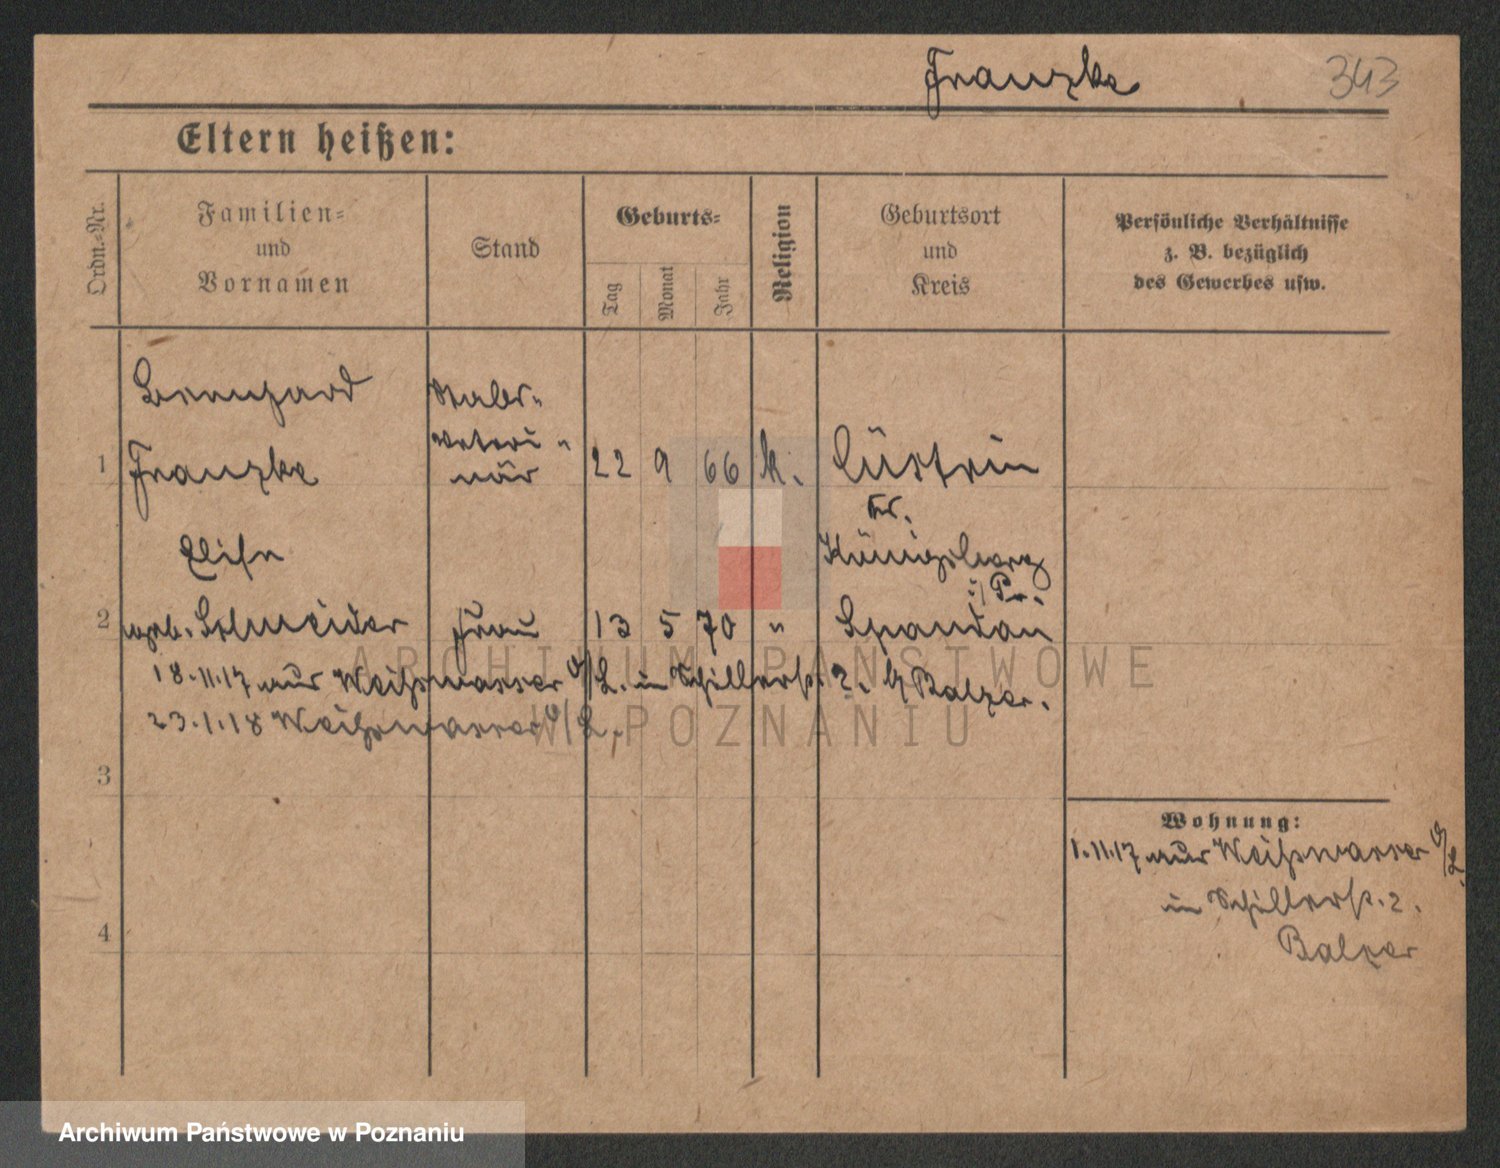 Franzke 343
Eltern heißen:
Ordn.-Nr.
Familien-
und
Vornamen
Stand
Geburts-
Tag
Monat
Jahr
Religion
Geburtsort
und
Kreis
Persönliche Verhältnisse
z. B. bezüglich
des Gewerbes usw.
Bernhard
Stabs-
veteri-
1 Franzke när 22 9 66 k. Cüstrin
Kr.
Elise Königsberg
i/Pr.
2 geb. Schneider Frau 13 5 70 " Spandau
18.11.17 aus Weißwasser O/L. in Schillerstr. 2. b/ Balzer.
23.1.18 Weißwasser O/L.
ARCHIWUM PAŃSTWOWE
W POZNANIU
3
Wohnung:
1.11.17 aus Weißwasser O/L.
in Schillerstr. 2.
4 Balzer
Archiwum Państwowe w Poznaniu